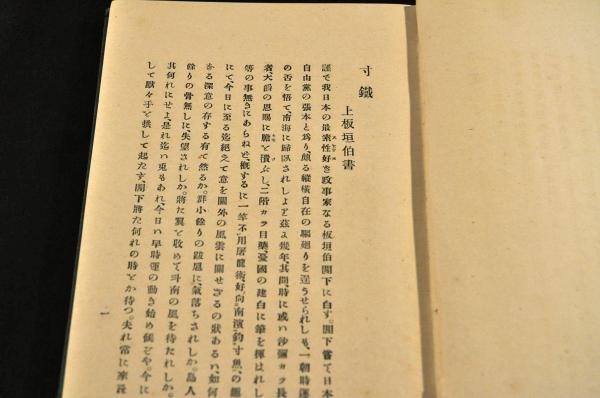 寸鐵
上板垣伯書
謹で我日本の最素性好き政事家なる板垣伯閣下に白す。閣下嘗て日本
自由黨の張本と爲り、頗る縱橫自在の驅廻りを逞うせられしも、一朝時運
の否を悟て、南海に歸臥されしよと茲に幾年其間、時に或い沙彌カラ長
者、大爵の恩賜に膽を潰ぶし、二階カラ目藥、憂國の建白に筆を揮はれし
等の事無きにあらねど、概するに一竿不用屠龍術、好向南濱釣寸魚、の趣
にて、今日に至る迄絕えて意を閫外の風雲に關せざるの狀あるい、如何
なる深意の存する有て然るか。群小餘りの跋扈に、氣落ちされしか。島人
餘りの骨無しに、失望されしか。將た翼を收めて斗南の風を待たれしか。
其何れにせよ、是れ迄い兎もあれ、今日い早時運の動き始め候ぞや。今に
して默々手を拱して起たず、閣下將た何れの時をか待つ。夫れ常に
一